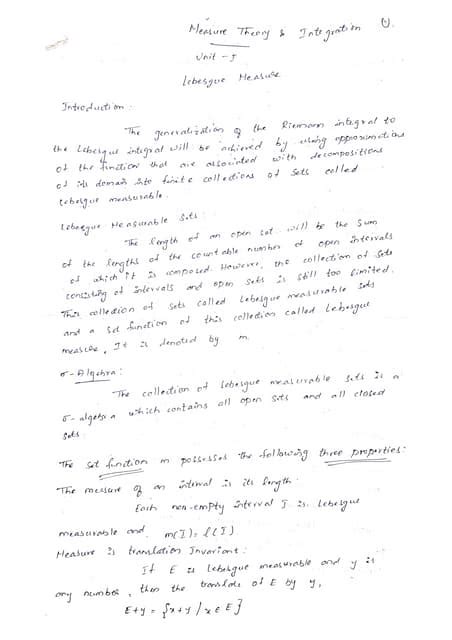 Measure Theory & Integration ①.
Unit - I
Lebesgue Measure
Introduction :
The generalization of the Riemann integral to
the Lebesgue integral will be achieved by using approximations
of the function that are associated with decompositions
of its domain into finite collections of sets called
Lebesgue measurable.
Lebesgue Measurable Sets :
The length of an open set will be the sum
of the lengths of the countable number of open intervals
of which it is composed. However, the collection of sets
consisting of intervals and open sets is still too limited.
This collection of sets called Lebesgue measurable sets
and a set function of this collection called Lebesgue
measure, It is denoted by m.
σ - Algebra :
The collection of Lebesgue measurable sets is a
σ - algebra which contains all open sets and all closed
sets.
The set function m possesses the following three properties:
The measure of an interval is its length.
Each non-empty interval I is Lebesgue
measurable and m(I) = l(I).
Measure is translation Invariant :
If E is Lebesgue measurable and y is
any number, then the translate of E by y,
E+y = {x+y / x ∈ E}